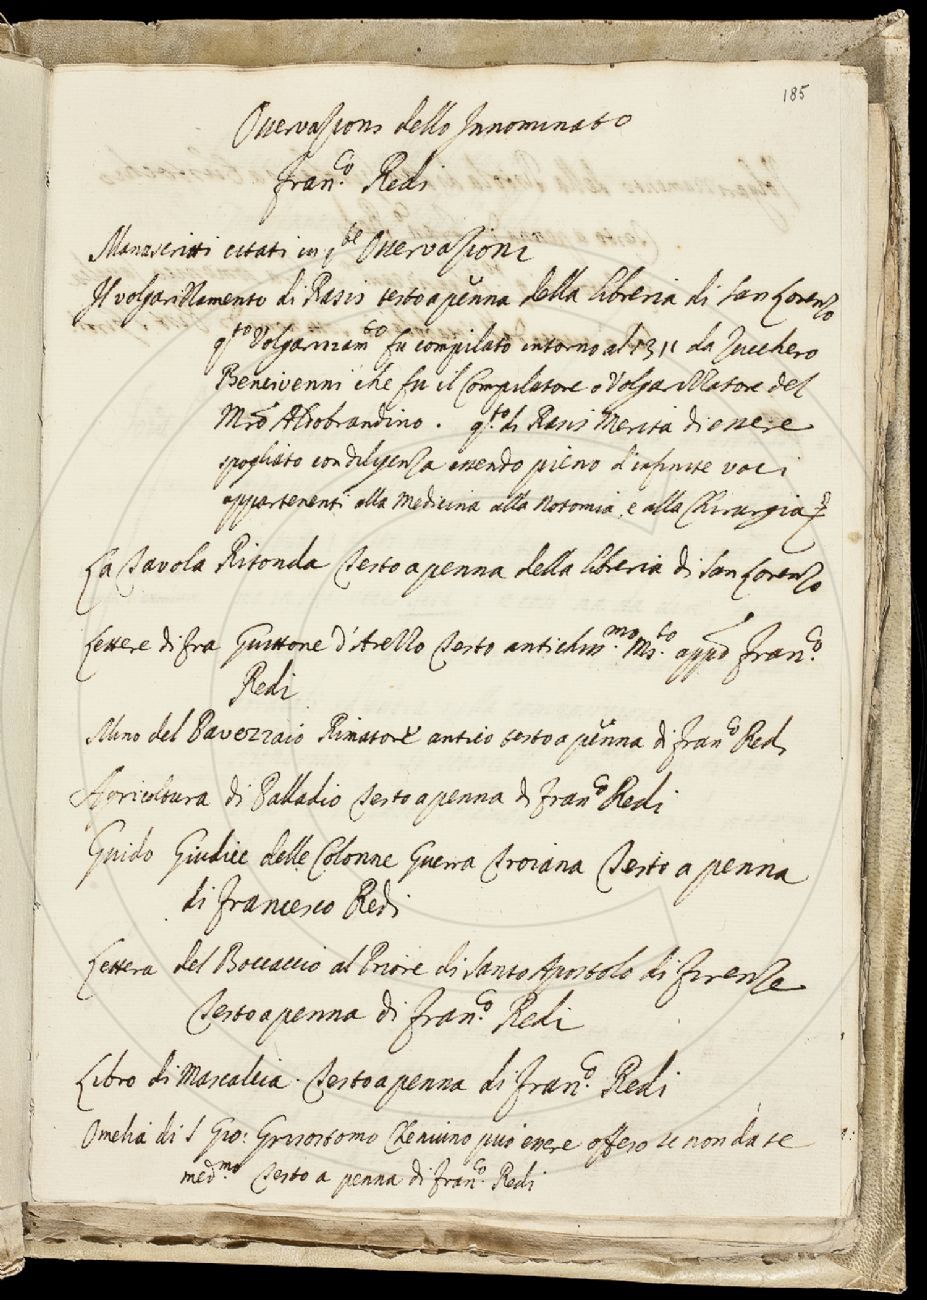 185
Osservazioni dello Innominato
Fran.co Redi
Manuscritti citati in q.te Osservazioni
Il volgarizzamento di Rasis testo a penna della libreria di San Lorenzo
q.to Volgarizzam.to fu compilato intorno al 1311 da Zucchero
Bencivenni che fu il Compilatore o Volgarizzatore del
M.ro Aldobrandino. q.to di Rasis Merita di essere
spogliato con diligenza essendo pieno d'infinite voci
appartenenti alla Medicina alla Notomia, e alla Chirurgia
La Tavola Ritonda Testo a penna della libreria di San Lorenzo
Lettere di fra Guittone d'Arezzo Testo antichiss.mo Ms.to app.o Fran.co
Redi
Mino del Pavezzaio Rimatore antico testo a penna di Fran.co Redi
Agricoltura di Palladio Testo a penna di Fran.co Redi
Guido Giudice delle Colonne Guerra Troiana Testo a penna
di Francesco Redi
Lettera del Boccaccio al Priore di Santo Apostolo di Firenze
Testo a penna di Fran.co Redi
Libro di Mascalcia. Testo a penna di Fran.co Redi
Omelia di S Gio: Grisostomo Che niuno può essere offeso se non da se
med.mo Testo a penna di Fran.co Redi